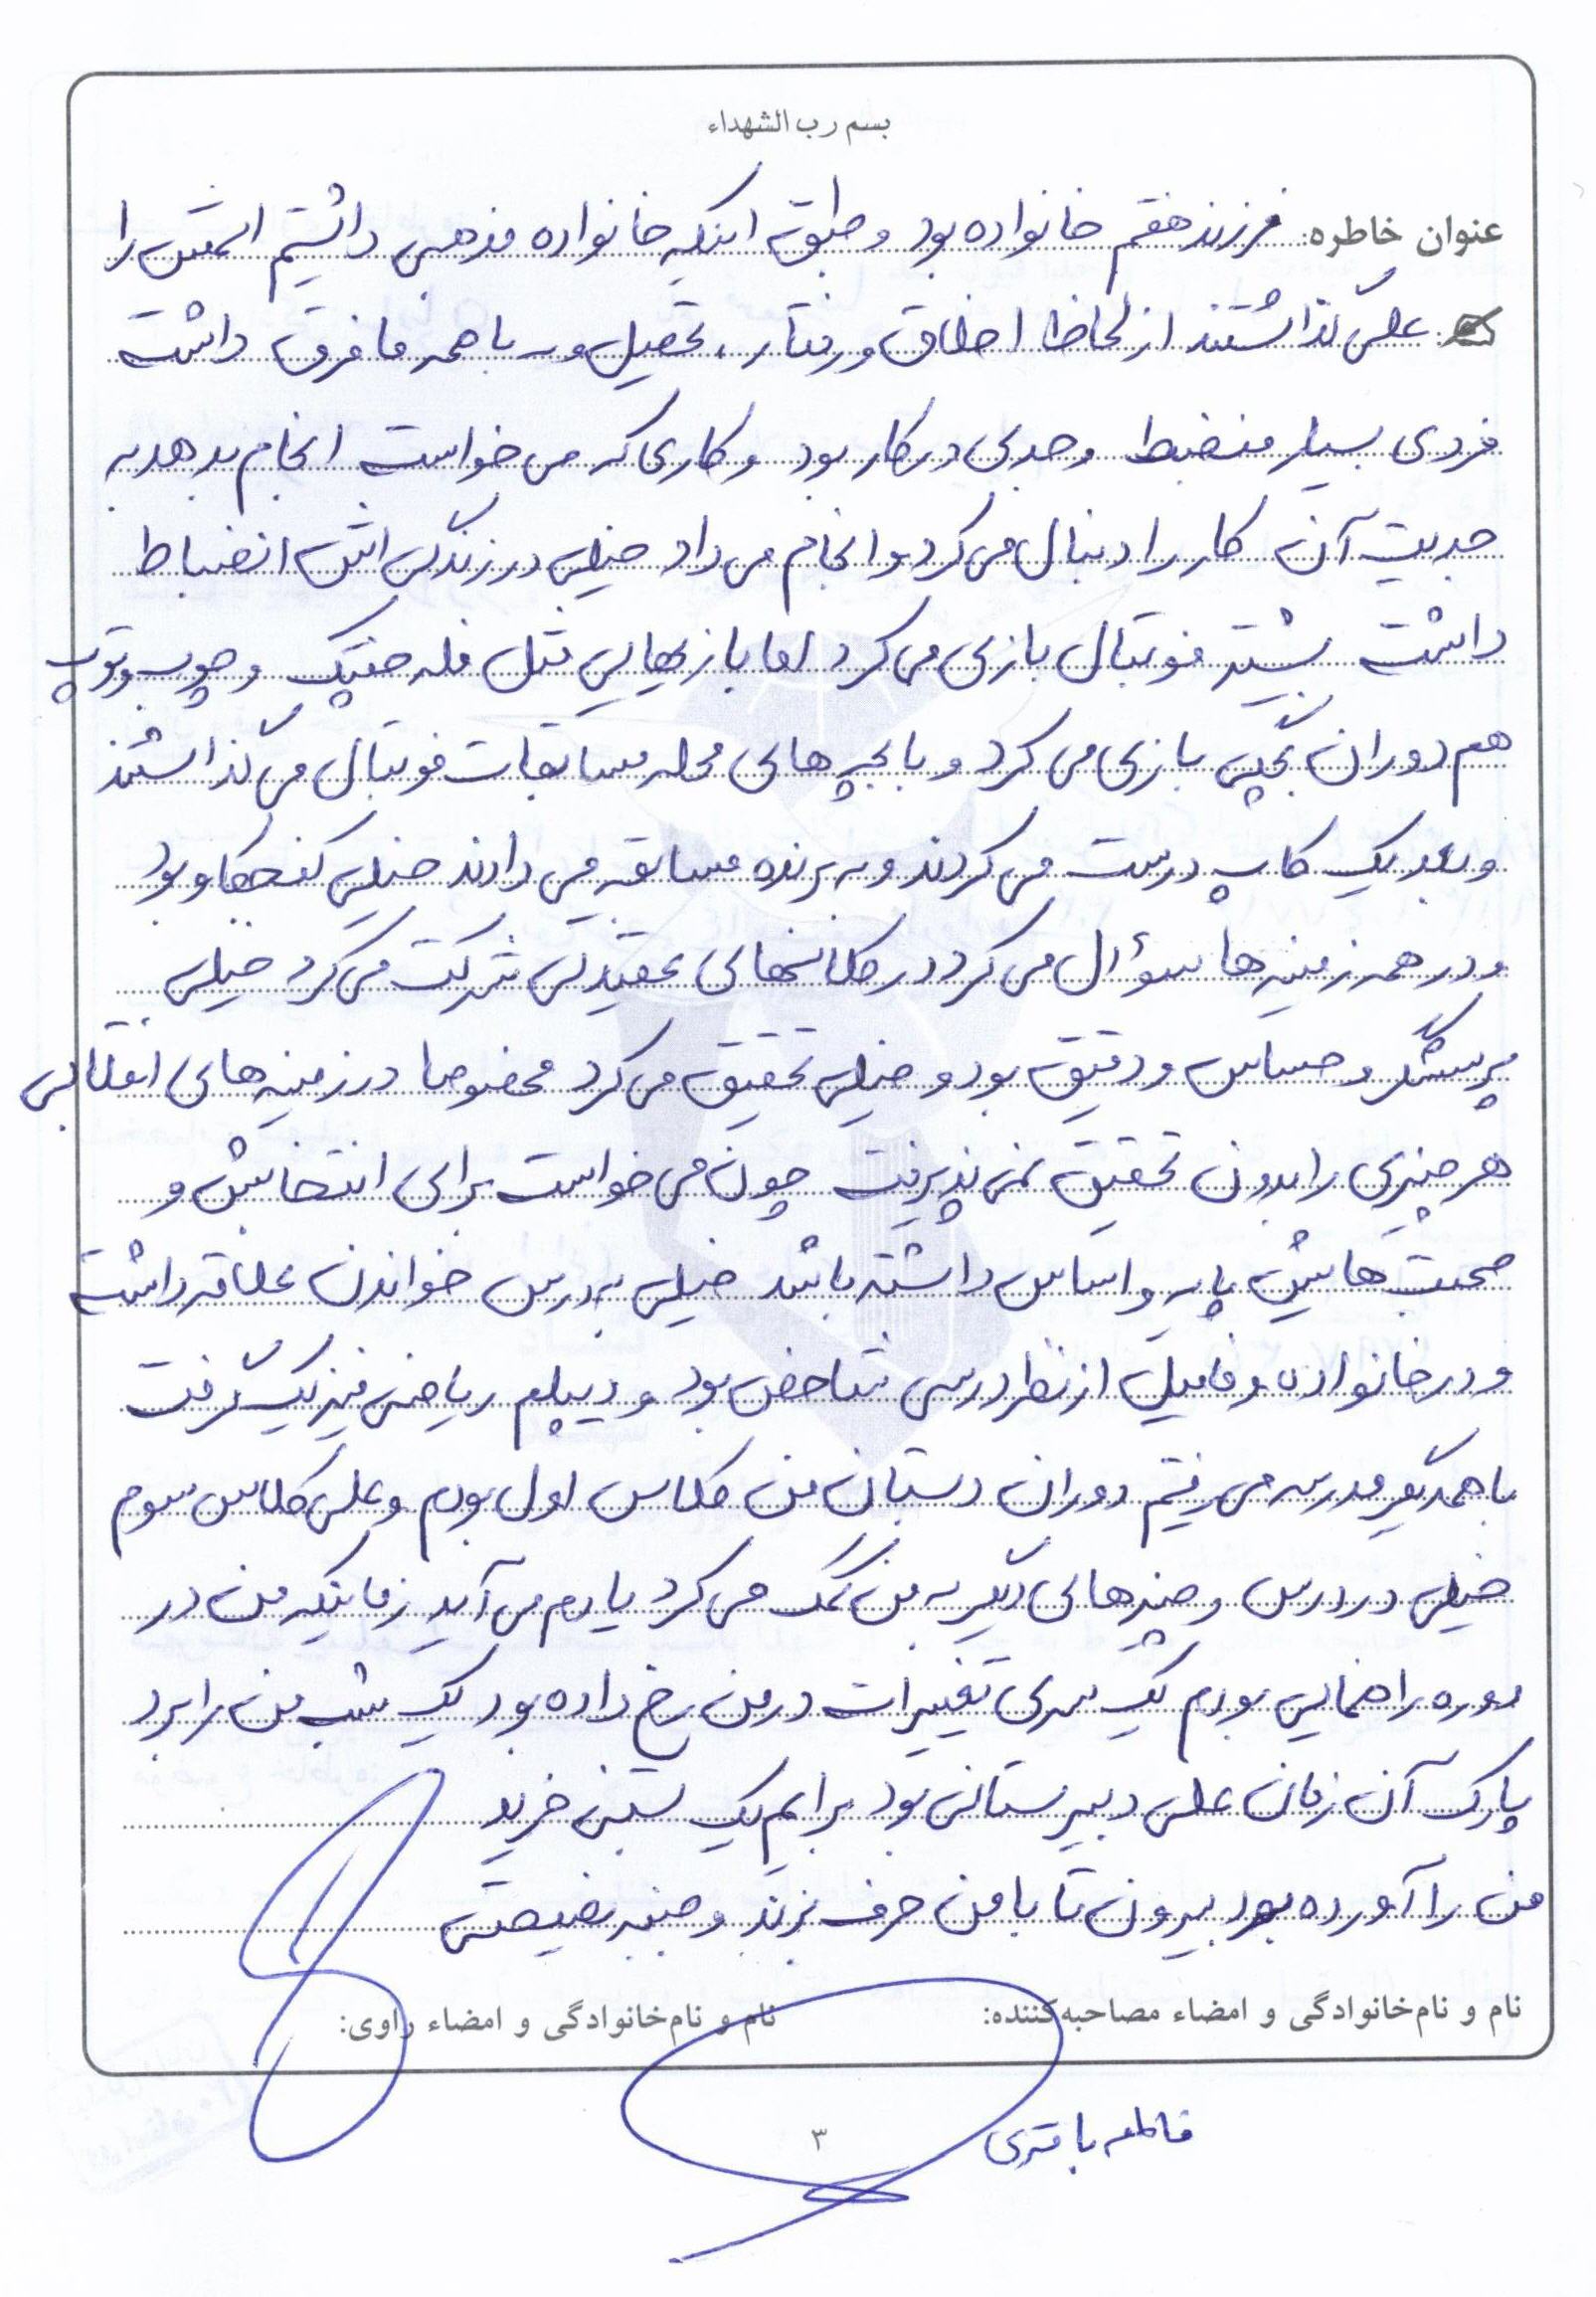 بسم رب الشهداء
عنوان خاطره: فرزند هفتم خانواده بود و طبق اینکه خانواده مذهبی داشتیم اسمش را
علی گذاشتند از لحاظ اخلاق و رفتار، تحصیل و با همه ما فرق داشت
فردی بسیار منضبط و جدی در کار بود و کاری که می خواست انجام بدهد به
جدیت آن کار را دنبال می کرد و انجام می داد خیلی در زندگی اش انضباط
داشت بیشتر فوتبال بازی می کرد اما بازیهایی مثل و چوب و توپ
هم دوران بچگی بازی می کرد و با بچه های محله مسابقات فوتبال می گذاشتند
و بعد یک کاپ درست می کردند و به برنده مسابقه می دادند خیلی کنجکاو بود
و در همه زمینه ها سؤال می کرد در کلاسهای عقیدتی شرکت می کرد خیلی
پرسشگر و حساس و دقیق بود و خیلی تحقیق می کرد مخصوصا در زمینه های انقلابی
هر چیزی را بدون تحقیق نمی پذیرفت چون می خواست برای انتخابش و
صحبت هایش پایه و اساس داشته باشد خیلی به درس خواندن علاقه داشت
و در خانواده و فامیل از نظر درسی شاخص بود و دیپلم ریاضی فیزیک گرفت
با همدیگر مدرسه می رفتیم دوران دبستان من کلاس اول بودم و علی کلاس سوم
خیلی در درس و چیزهای دیگر به من کمک می کرد یادم می آید زمانیکه من در
دوره راهنمایی بودم یک سری تغییرات در من رخ داده بود یک شب من را برد
پارک آن زمان علی دبیرستانی بود برایم یک بستنی خرید
من را آورده بود بیرون تا با من حرف بزند و جنبه نصیحتی
نام و نام‌خانوادگی و امضاء مصاحبه‌کننده: نام و نام‌خانوادگی و امضاء راوی:
فاطمه باقری
۳